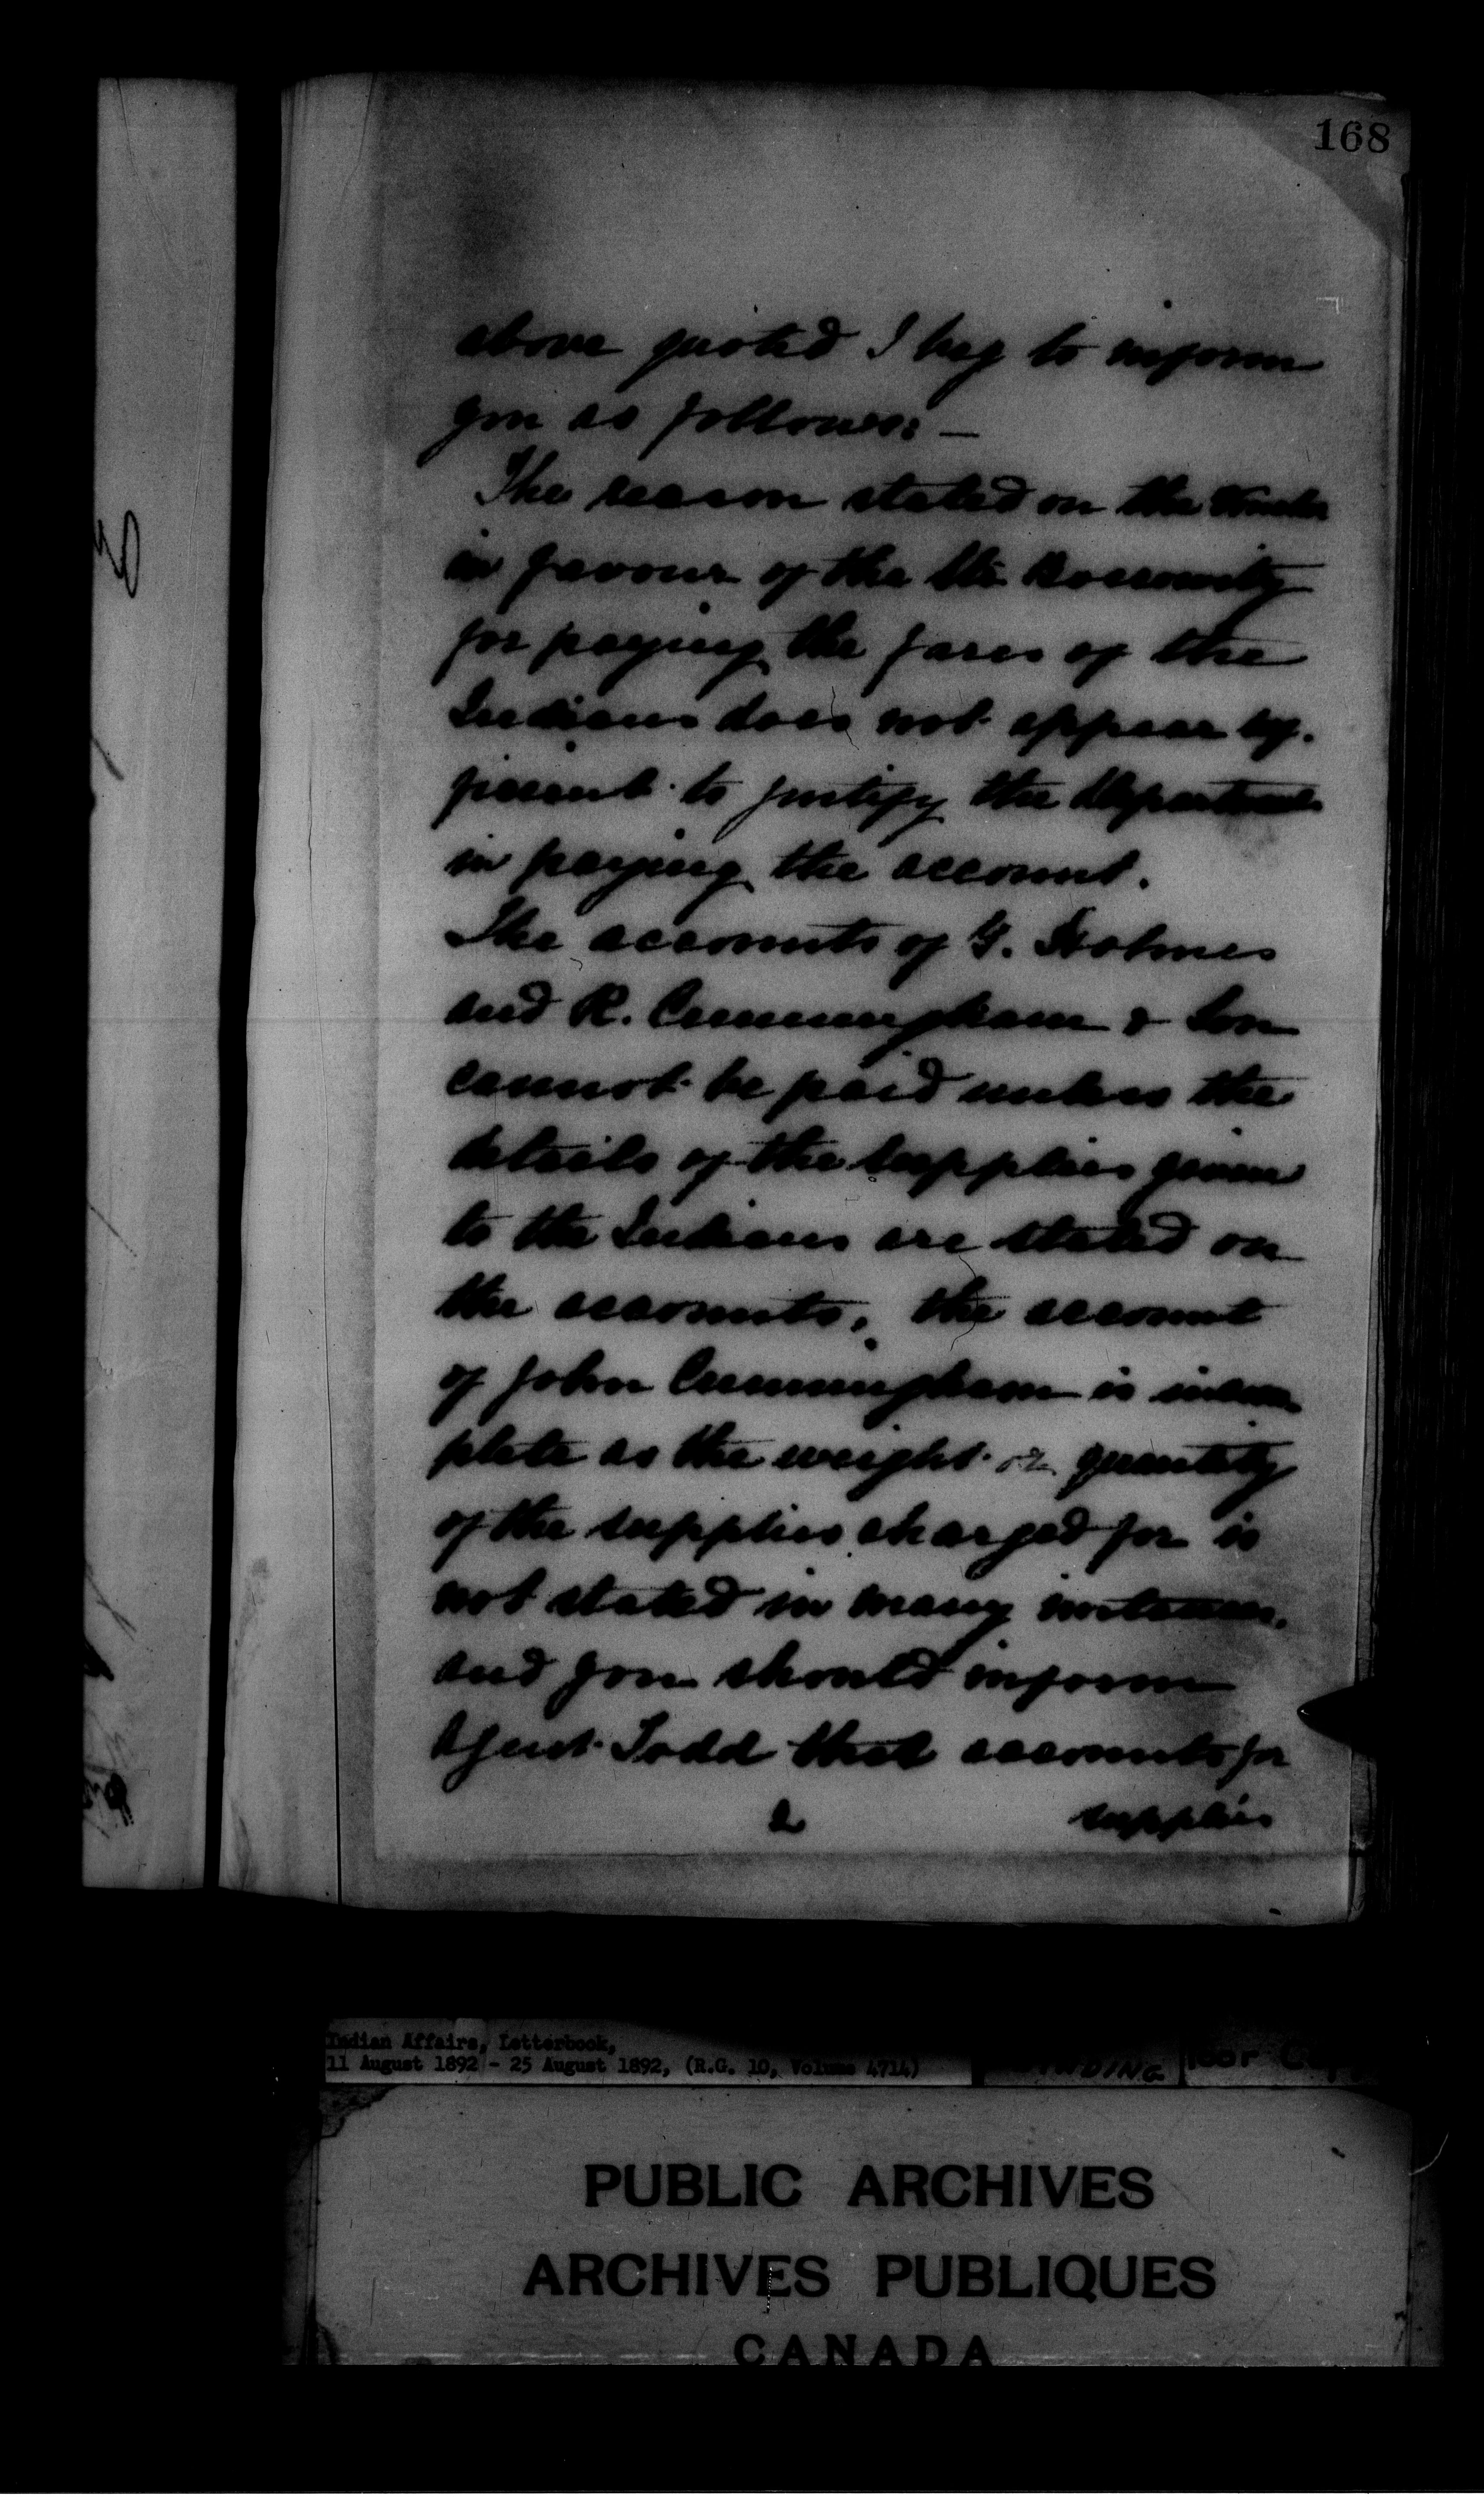 168
above quoted I beg to inform
you as follows: —
The reason stated on the Voucher
in favour of the Str. Boscowitz
for paying the fares of the
Indians does not appear
present to justify the Department
in paying the account.
The accounts of G. Holmes
and R. Cunningham & Son
cannot be paid unless the
details of the supplies given
to the Indians are stated on
the accounts, the account
of John Cunningham is incom
plete as the weight or quantity
of the supplies charged for is
not stated in many instances,
and you should inform
Agent Todd that accounts for
2 supplies
Indian Affairs, Letterbook,
11 August 1892 - 25 August 1892, (R.G. 10, Volume 4714)
PUBLIC ARCHIVES
ARCHIVES PUBLIQUES
CANADA